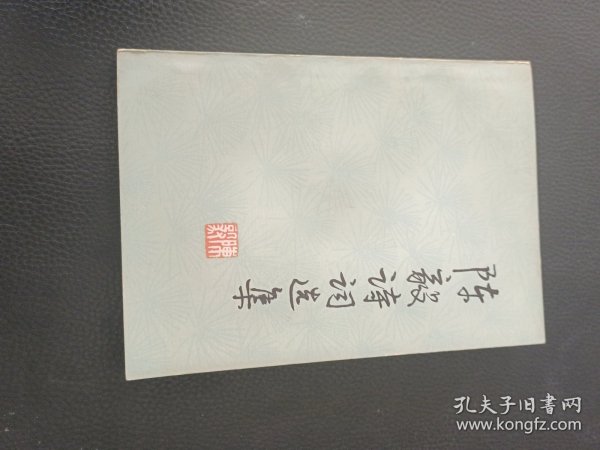 陈毅诗词选集
孔夫子旧书网
www.kongfz.com